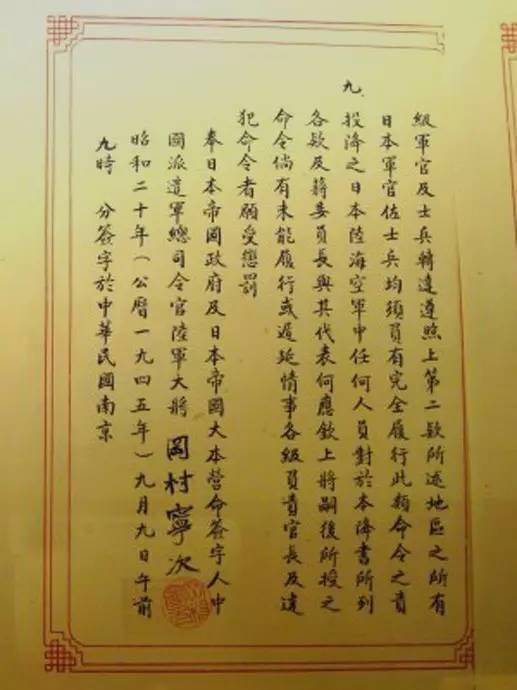 級軍官及士兵轉達遵照上第二款所述地區之所有
日本軍官佐士兵均須負有完全履行此類命令之責
九、投降之日本陸海空軍中任何人員對於本降書所列
各款及蔣委員長與其代表何應欽上將嗣後所授之
命令倘有未能履行或遲延情事各級負責官長及違
犯命令者願受懲罰
奉日本帝國政府及日本帝國大本營命簽字人中
國派遣軍總司令官陸軍大將 岡村寧次
昭和二十年(公曆一九四五年)九月九日午前
九時 分簽字於中華民國南京